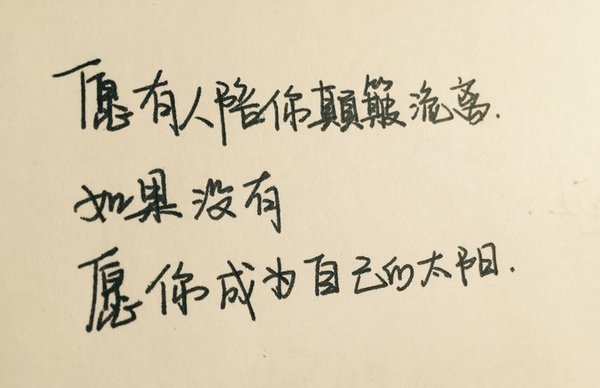 愿有人陪你顛簸流离.
如果没有
愿你成为自己的太阳.